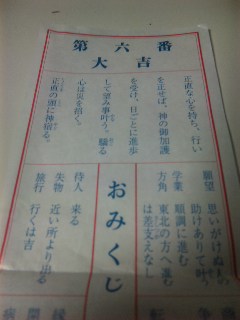 第六番
大吉
正直な心を持ち、行い
を正せば、神の御加護
を受け、日ごとに進歩
して望み事叶う。驕る
心は災を招く。
正直の頭に神宿る。
願望 思いがけぬ
助けありて叶う
学業 順調に進む
方角 東北の方へ進む
は差支えなし
おみくじ
待人 来る
失物 近い所より出る
旅行 行くは吉